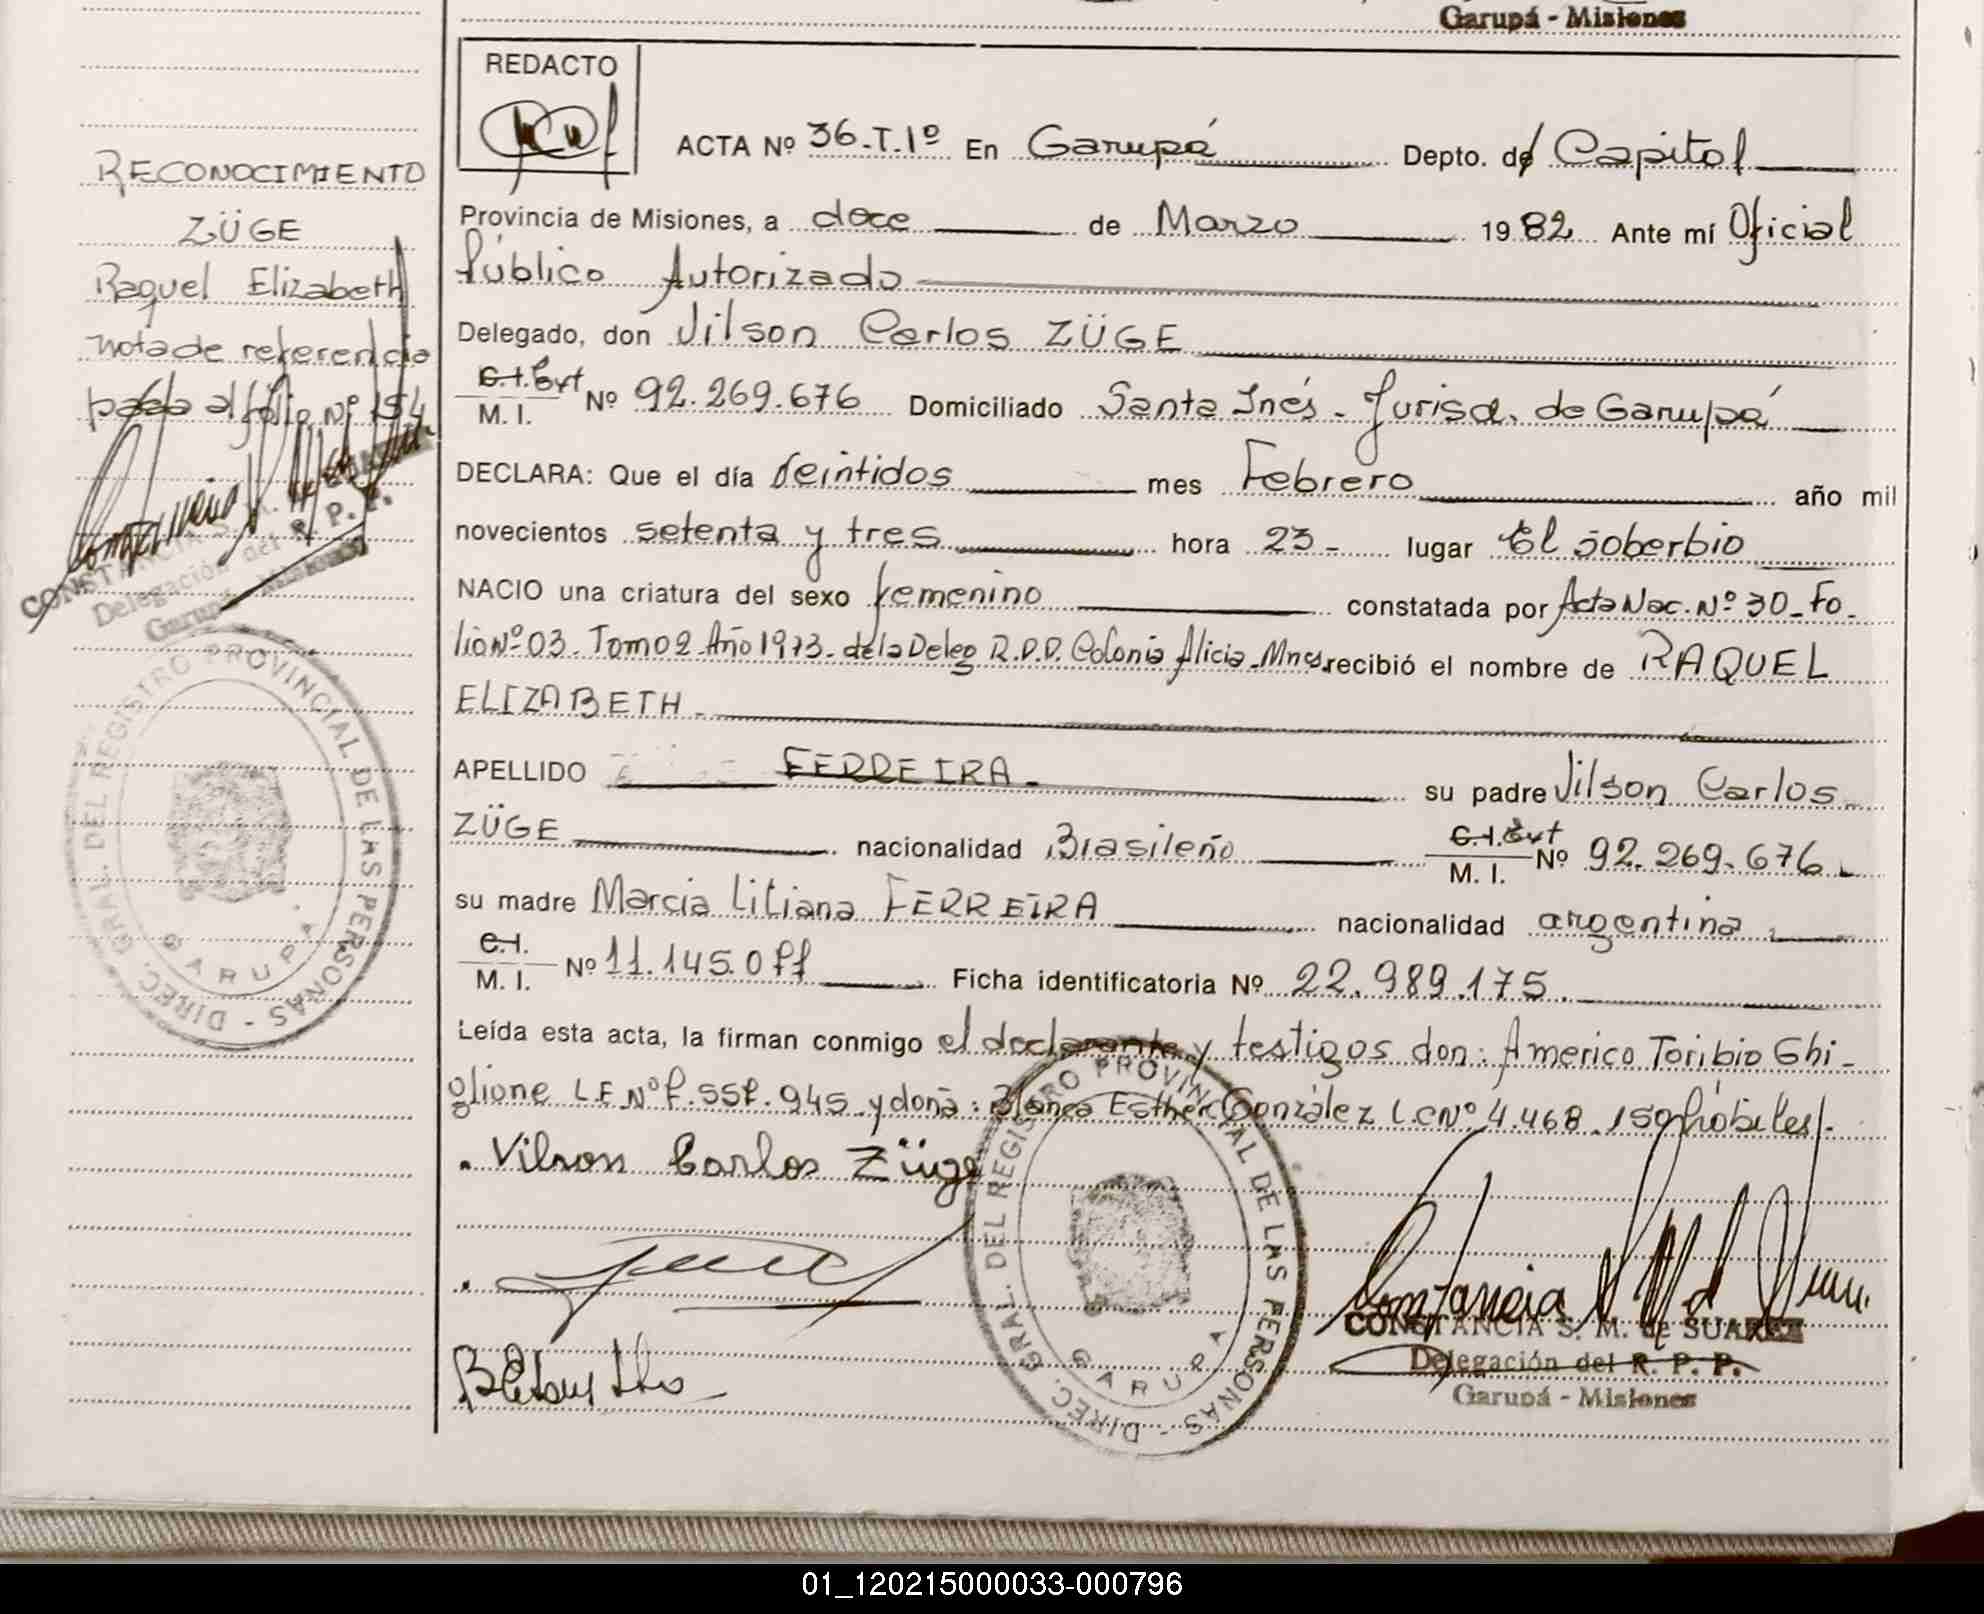 Garupá - Misiones
REDACTO
ACTA Nº 36.T.1º En Garupá Depto. de Capital
Provincia de Misiones, a doce de Marzo 1982 Ante mí Oficial
Público Autorizado
Delegado, don Vilson Carlos ZÜGE
C.I. Ext
M. I. Nº 92.269.676 Domiciliado Santa Inés - Jurisd. de Garupá
DECLARA: Que el día Veintidos mes Febrero año mil
novecientos setenta y tres hora 23- lugar El Soberbio
NACIO una criatura del sexo femenino constatada por Acta Nac. Nº 30_Fo_
lio Nº 03. Tomo 2 Año 1973. de la Deleg R.P.P. Colonia Alicia_Mnes recibió el nombre de RAQUEL
ELIZABETH
APELLIDO FERREIRA su padre Vilson Carlos
ZÜGE nacionalidad Brasileño C.I. Ext
M. I. Nº 92.269.676
su madre Marcia Liliana FERREIRA nacionalidad argentina
C.I.
M. I. Nº 11.145.0 Ficha identificatoria Nº 22.989.175.
Leída esta acta, la firman conmigo el declarante y testigos don: Americo Toribio Ghi_
glione L.E.Nº 945 y doña: Blanca Esther González L.C Nº 4.468.150 hábiles/-
Vilson Carlos Züge
CONSTANCIA S. M. de SUAREZ
Delegación del R. P. P.
Garupá - Misiones
RECONOCIMIENTO
ZÜGE
Raquel Elizabeth
nota de referencia
pasa al folio Nº 154
CONSTANCIA S. M.
Delegación del R. P. P.
Garupá - Misiones
DIREC. GRAL. DEL REGISTRO PROVINCIAL DE LAS PERSONAS -
GARUPA
DIREC. GRAL. DEL REGISTRO PROVINCIAL DE LAS PERSONAS -
GARUPA
01_120215000033-000796